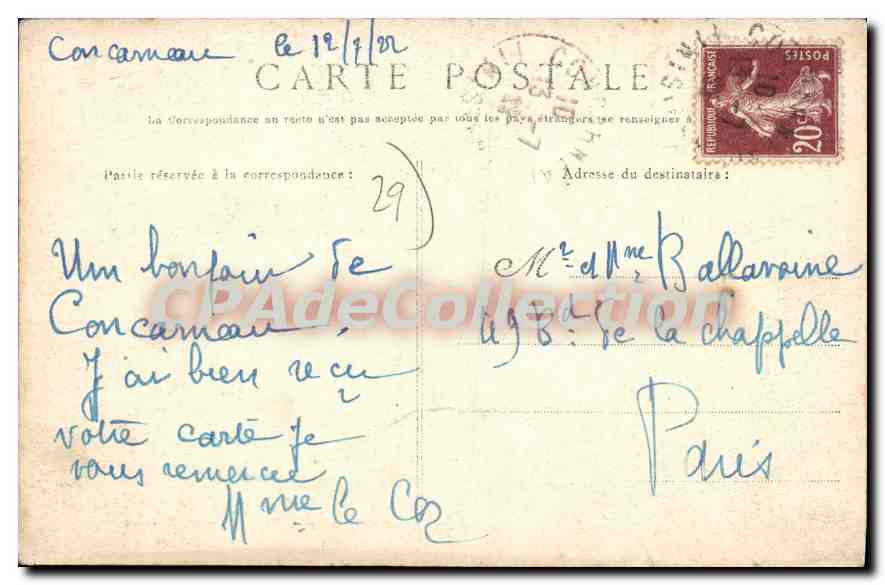 Concarneau le 12/7/22
CARTE POSTALE
La Correspondance au recto n'est pas acceptée par tous les pays étrangers (se renseigner à
Partie réservée à la correspondance :
Adresse du destinataire :
REPUBLIQUE FRANÇAISE
POSTES
20c
29
Un bonjour de
Concarneau,
J'ai bien reçu
votre carte je
vous remercie
Mme Le Cor
Mr et Mme Ballavoine
49 Bd de la chappelle
Paris
CPAdeCollection